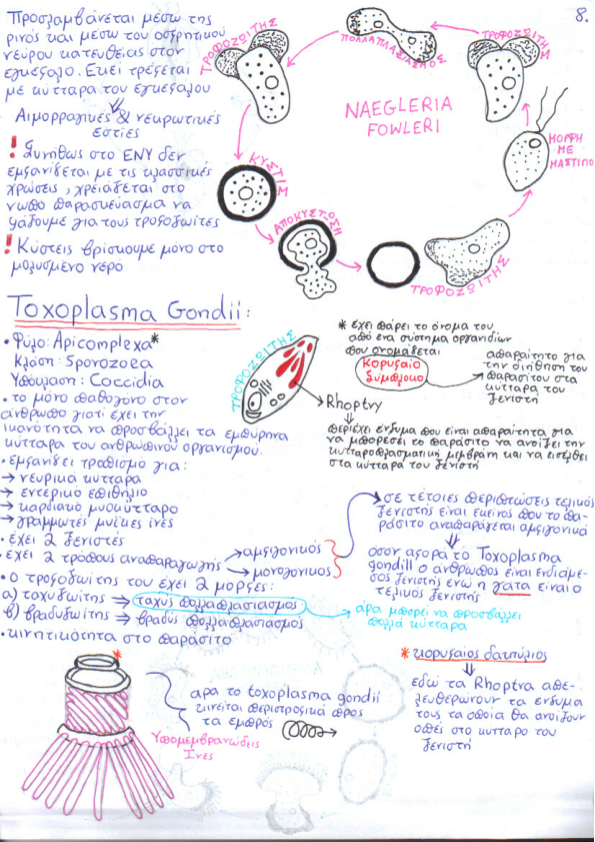 8.
Προσλαμβάνεται μέσω της
ρινός και μέσω του οσφρητικού
νεύρου κατευθείας στον
εγκέφαλο. Εκεί τρέφεται
με κύτταρα του εγκεφάλου
⇓
Αιμορραγικές & νεκρωτικές
εστίες
! Συνήθως στο ΕΝΥ δεν
εμφανίζεται με τις κλασσικές
χρώσεις, χρειάζεται στο
νωπό παρασκεύασμα να
ψάξουμε για τους τροφοζωίτες
! Κύστεις βρίσκουμε μόνο στο
μολυσμένο νερό
ΤΡΟΦΟΖΩΪΤΗΣ
ΠΟΛΛΑΠΛΑΣΙΑΣΜΟΣ
ΤΡΟΦΟΖΩΪΤΗΣ
NAEGLERIA
FOWLERI
ΜΟΡΦΗ
ΜΕ
ΜΑΣΤΙΓΙΟ
ΚΥΣΤΙΣ
ΑΠΟΚΥΣΤΩΣΗ
ΤΡΟΦΟΖΩΪΤΗΣ
Toxoplasma Gondii:
• Φύλο: Apicomplexa*
Κλάση: Sporozoea
Υπόκλαση: Coccidia
• το μόνο παθογόνο στον
άνθρωπο γιατί έχει την
ικανότητα να προσβάλλει τα εμπύρηνα
κύτταρα του ανθρωπίνου οργανισμού.
• εμφανίζει τροπισμό για:
→ νευρικά κύτταρα
→ εντερικό επιθήλιο
→ καρδιακό μυοκύτταρο
→ γραμμωτές μυϊκές ίνες
• έχει 2 ξενιστές
• έχει 2 τρόπους αναπαραγωγής
→ αμφιγονικός
→ μονογονικός
• Ο τροφοζωίτης του έχει 2 μορφές:
α) ταχυζωίτης ⇒ ταχύς πολλαπλασιασμός
β) βραδυζωίτης ⇒ βραδύς πολλαπλασιασμός
• κινητικότητα στο παράσιτο
ΤΡΟΦΟΖΩΪΤΗΣ
* έχει πάρει το όνομα του
από ένα σύστημα οργανιδίων
που ονομάζεται
Κορυφαίο
Σύμπλοκο
απαραίτητο για
την διήθηση του
παρασίτου στα
κύτταρα του
ξενιστή
Rhoptry
⇓
περιέχει ένζυμα που είναι απαραίτητα για
να μπορέσει το παράσιτο να ανοίξει την
κυτταροπλασματική μεμβράνη και να εισέλθει
στα κύτταρα του ξενιστή
σε τέτοιες περιπτώσεις τελικός
ξενιστής είναι εκείνος που το πα-
ράσιτο αναπαράγεται αμφιγονικά
⇓
όσον αφορά το Toxoplasma
gondii ο άνθρωπος είναι ενδιάμε-
σος ξενιστής ενώ η γάτα είναι ο
τελικός ξενιστής
άρα μπορεί να προσβάλλει
πολλά κύτταρα
*
άρα το toxoplasma gondii
κινείται περιστροφικά προς
τα εμπρός
Υπομεμβρανώδεις
Ίνες
* κορυφαίος δακτύλιος
⇓
εδώ τα Rhoptra απε-
λευθερώνουν τα ένζυμα
τους τα οποία θα ανοίξουν
οπές στο κύτταρο του
ξενιστή